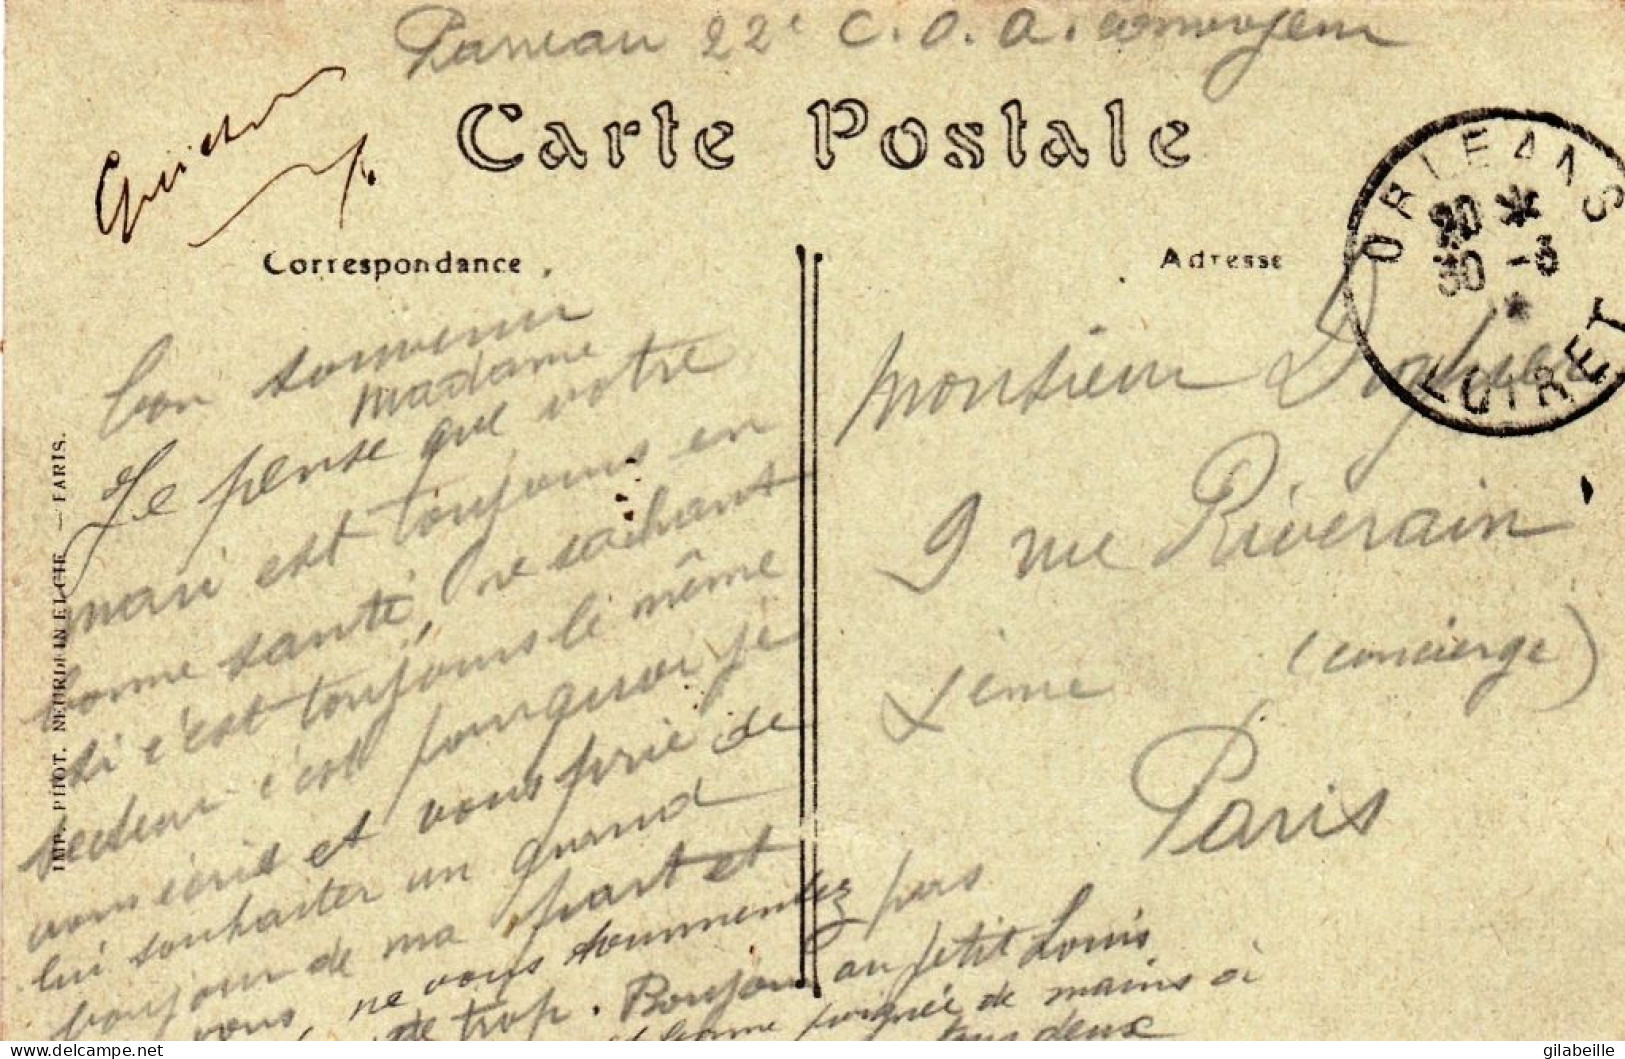 22e C. O. A. convoyeur
Carte Postale
ORLEANS
20 *
30 -3
*
LOIRET
Correspondance
Adresse
bon souvenir
madame
Je pense que votre
mari est toujours en
bonne santé, ne sachant
si c'est toujours le même
secteur c'est pourquoi je
vous écris et vous prie de
lui souhaiter un grand
bonjour de ma part et
vous, ne vous tourmentez pas
de trop. Bonjour au petit Louis
et bonne poignée de mains à
tous deux
Monsieur
9 rue Riverain
(concierge)
Paris
IMP. PITOT. NEURDEIN ET CIE — PARIS.
gilabeille